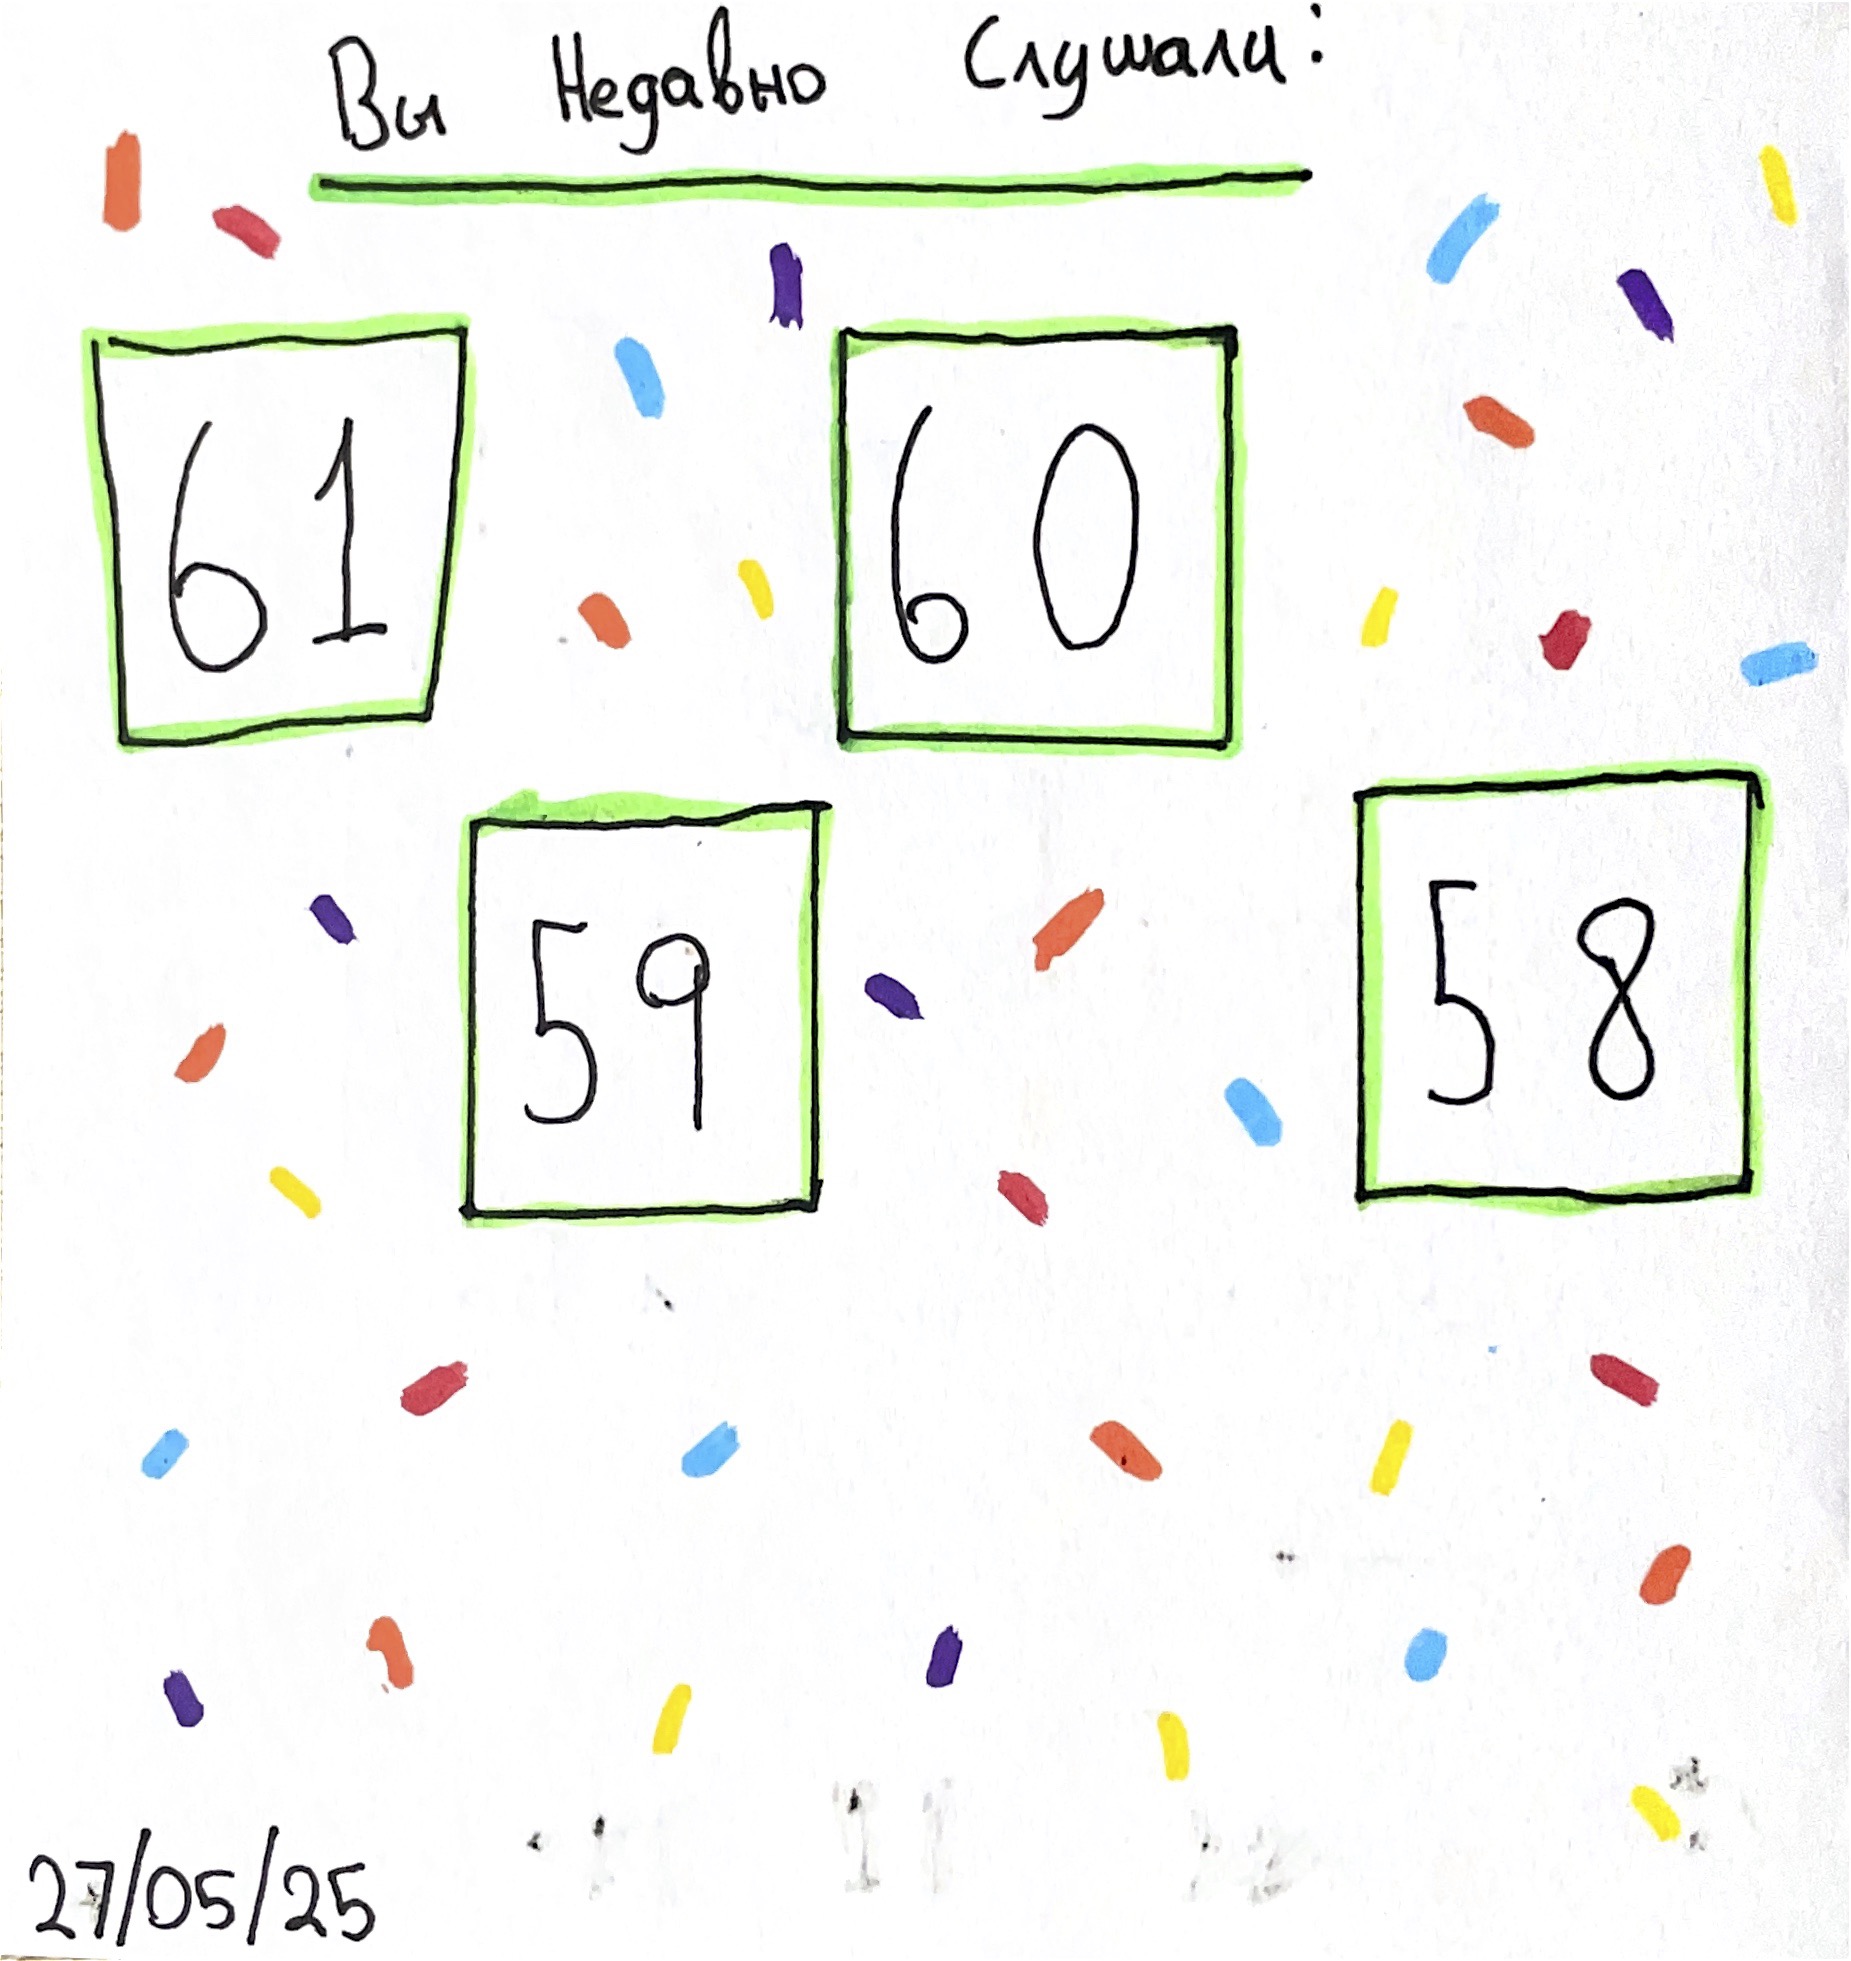 Вы Недавно Слушали:
61
60
59
58
27/05/25